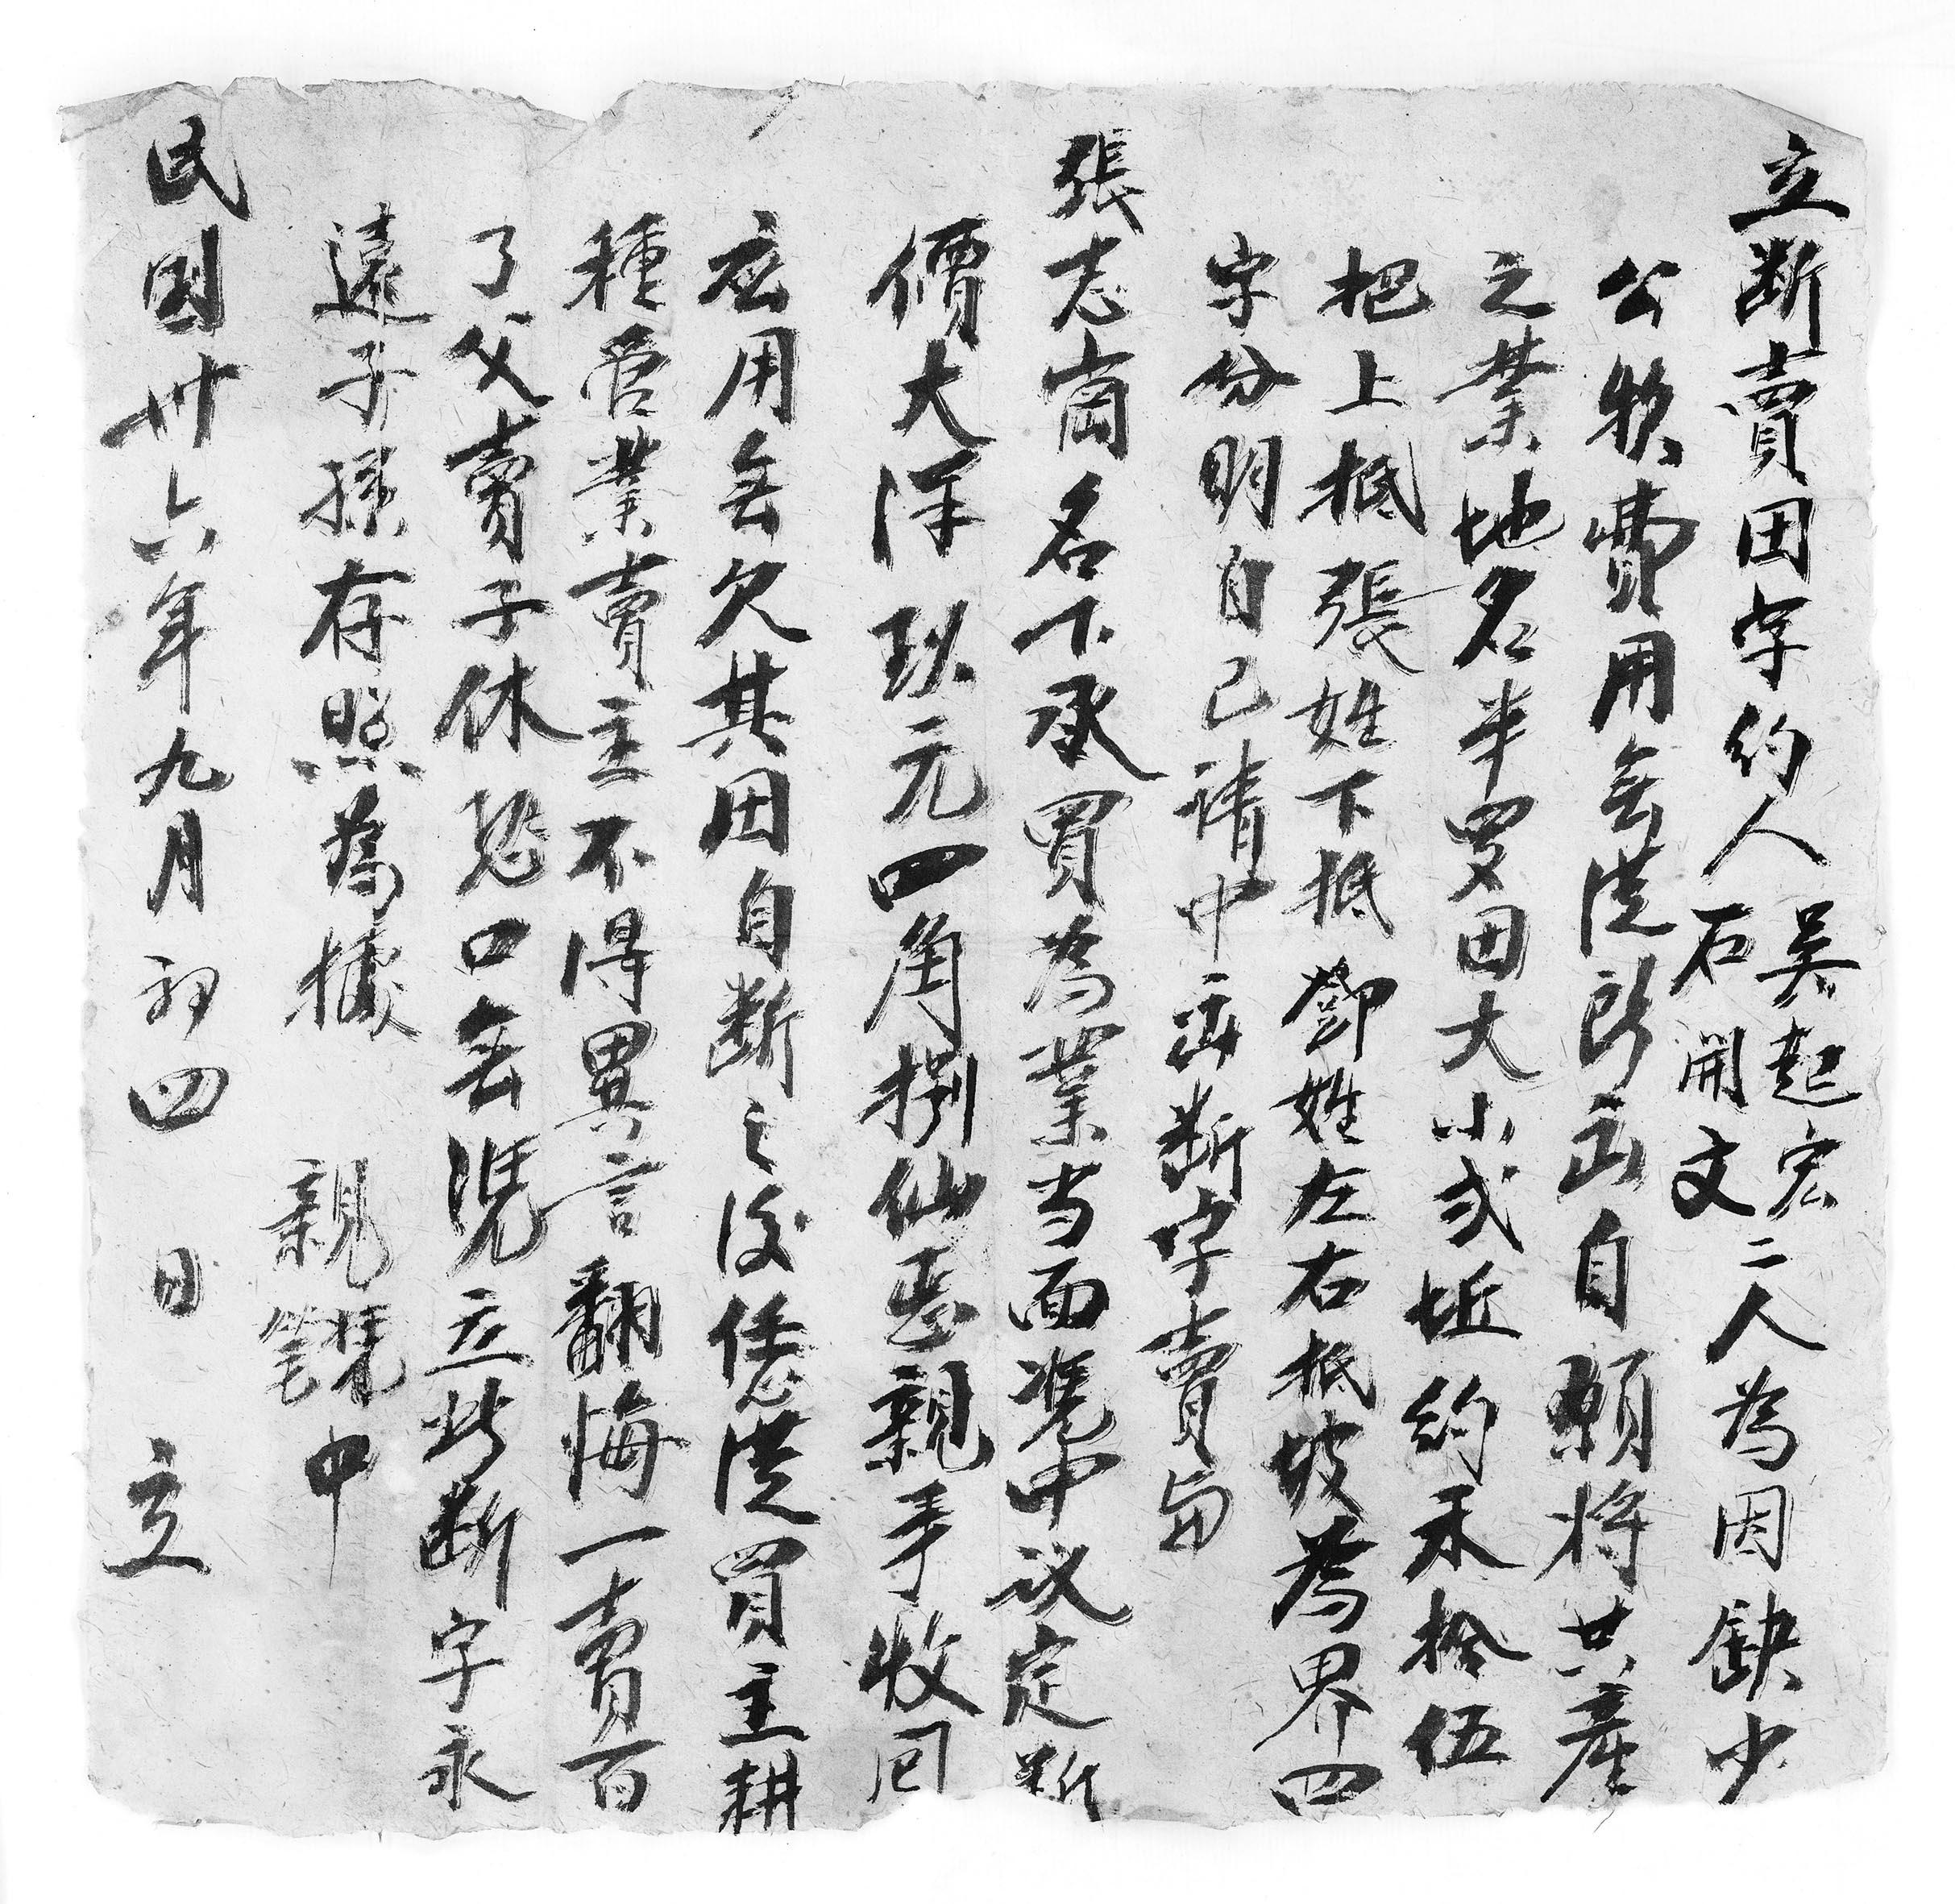 立断賣田字約人吳起宏石開文二人為因缺少
公粮費用無從所出自願将共産
之業地名半罗田大小弍坵約禾拾伍
把上抵張姓下抵鄧姓左右抵坡為界四
字分明自己請中出断字賣与
張志崗名下承買為業当面凴中议定断
價大洋玖元四角捌仙正親手收囘
应用無欠其田自断之後任從買主耕
種管業賣主不得異言翻悔一賣百
了父賣子休恐口無凴立此断字永
遠子孫存照為據 親筆 凴中
民囯卅六年九月初四 日 立